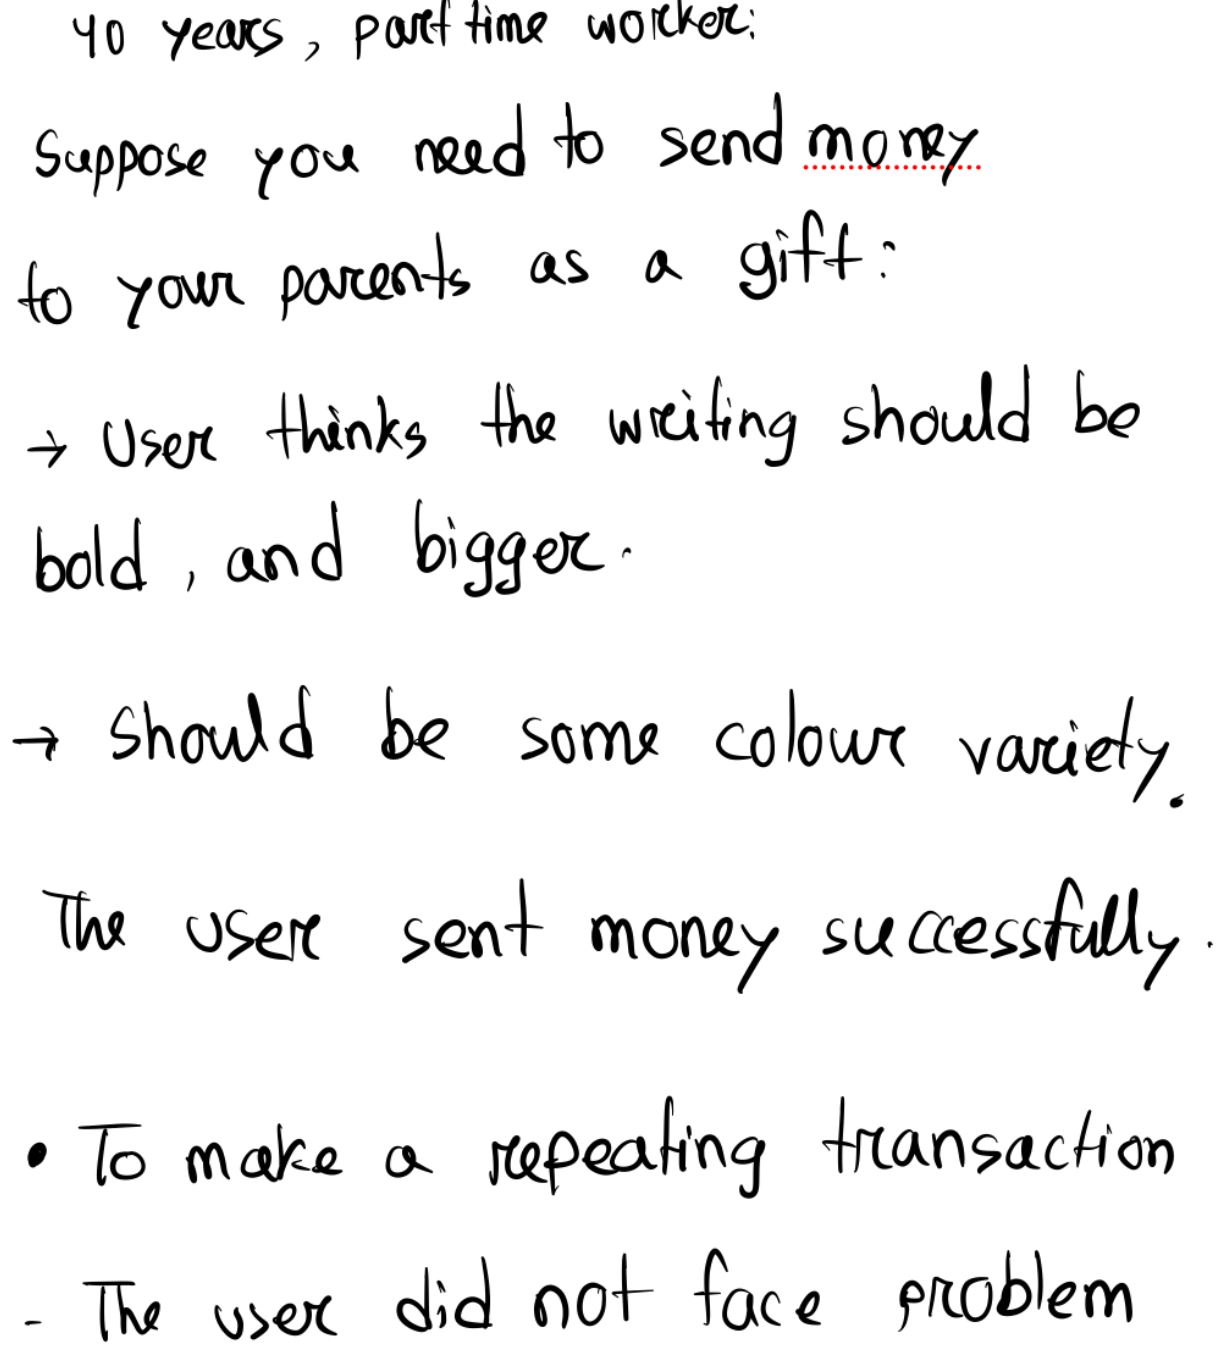 40 years, part time worker:
Suppose you need to send money
to your parents as a gift:
→ User thinks the writing should be
bold, and bigger.
→ Should be some colour variety.
The user sent money successfully.
• To make a repeating transaction
- The user did not face problem